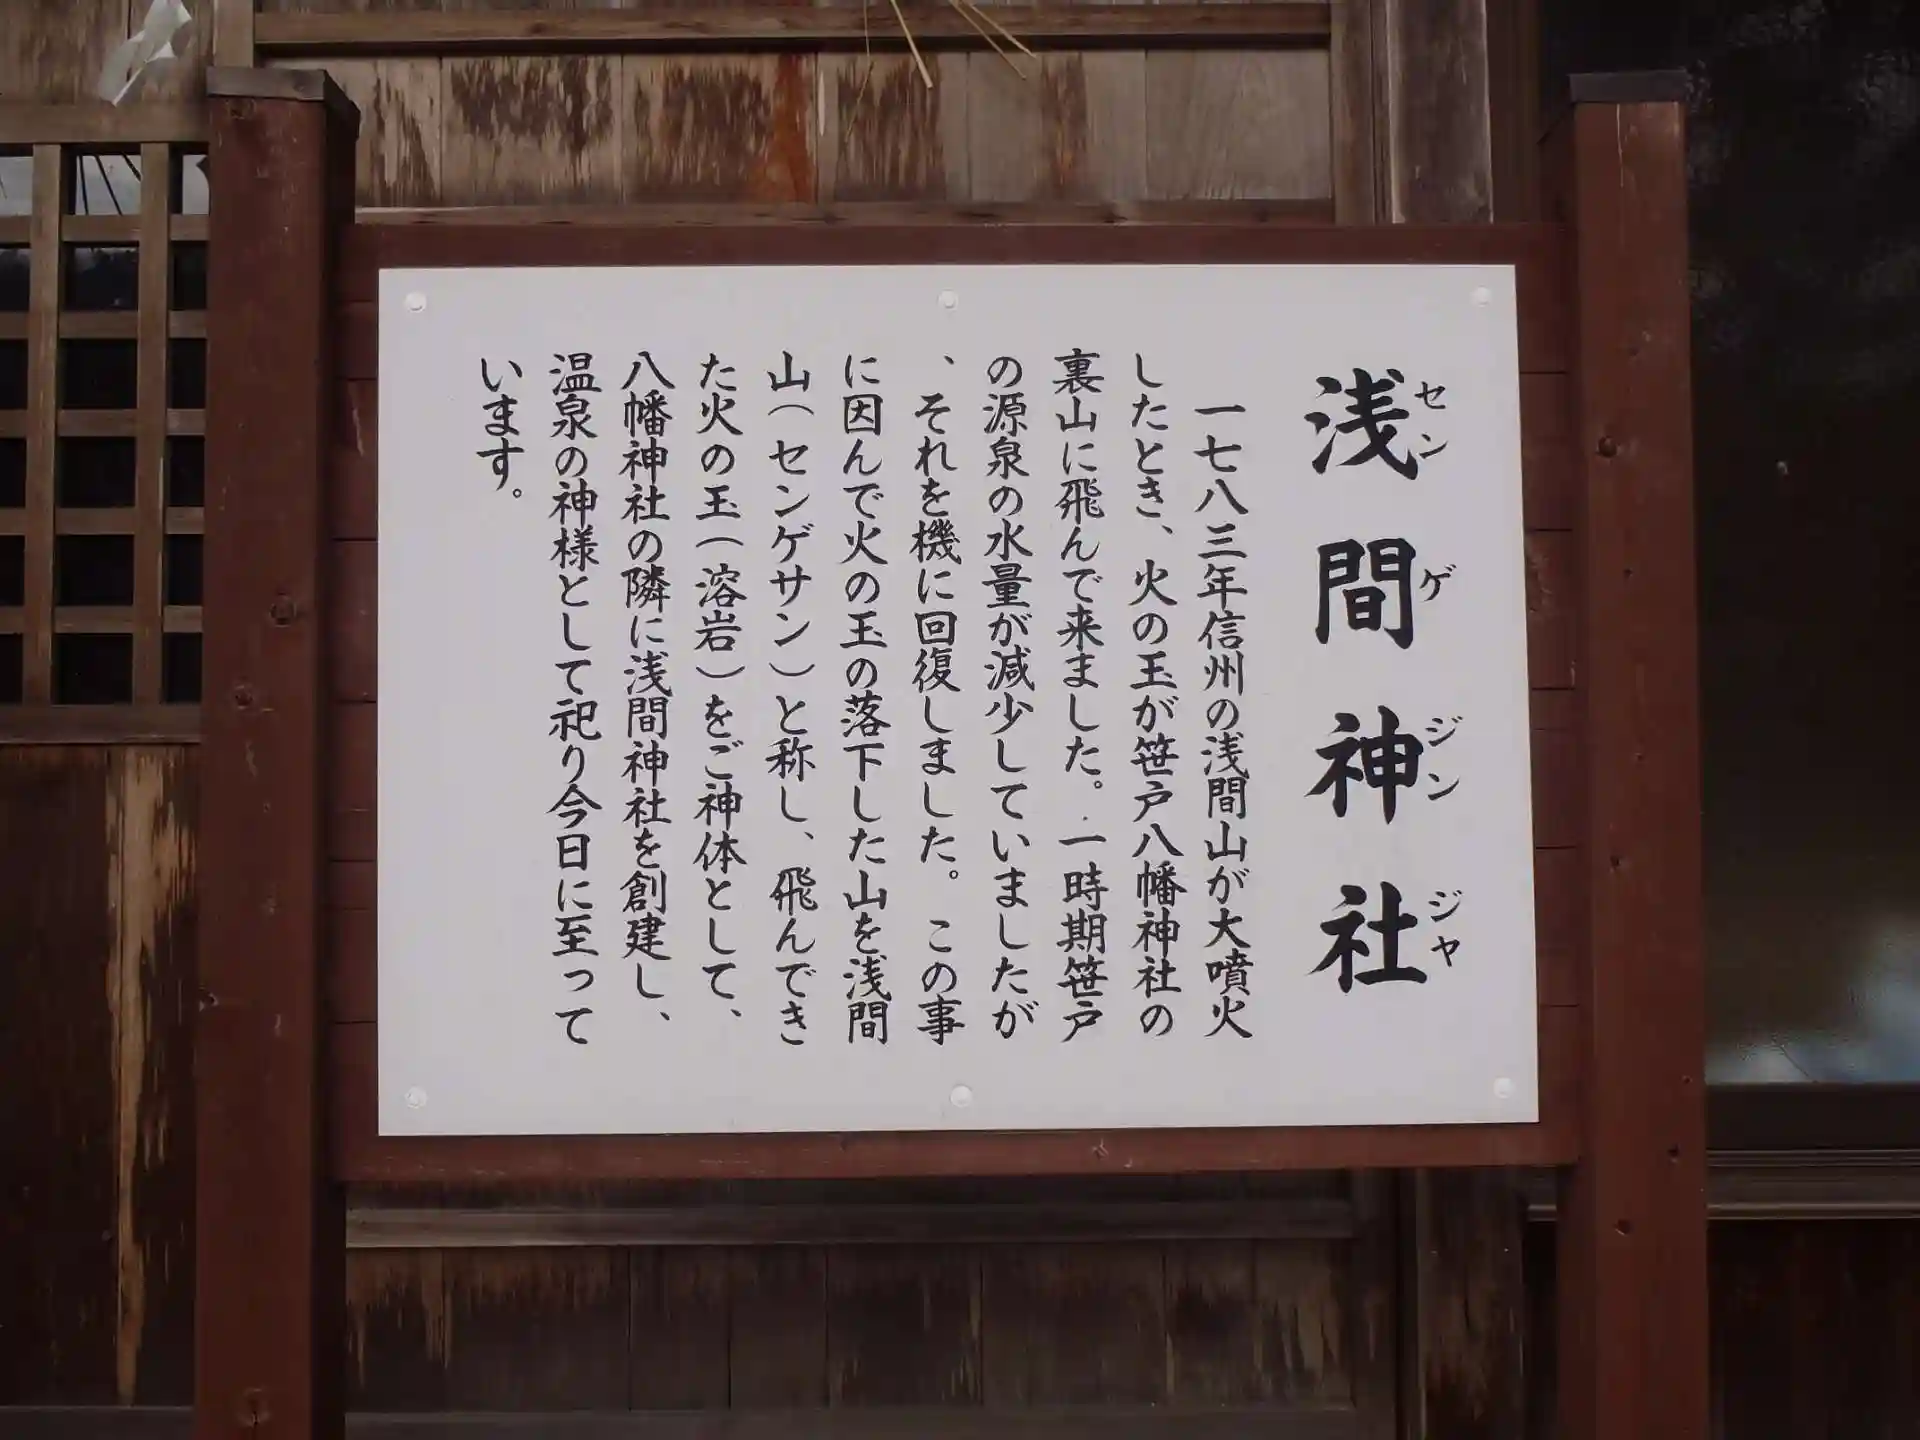 浅間神社
センゲジンジャ
一七八三年信州の浅間山が大噴火
したとき、火の玉が笹戸八幡神社の
裏山に飛んで来ました。一時期笹戸
の源泉の水量が減少していましたが
、それを機に回復しました。この事
に因んで火の玉の落下した山を浅間
山(センゲサン)と称し、飛んでき
た火の玉(溶岩)をご神体として、
八幡神社の隣に浅間神社を創建し、
温泉の神様として祀り今日に至って
います。